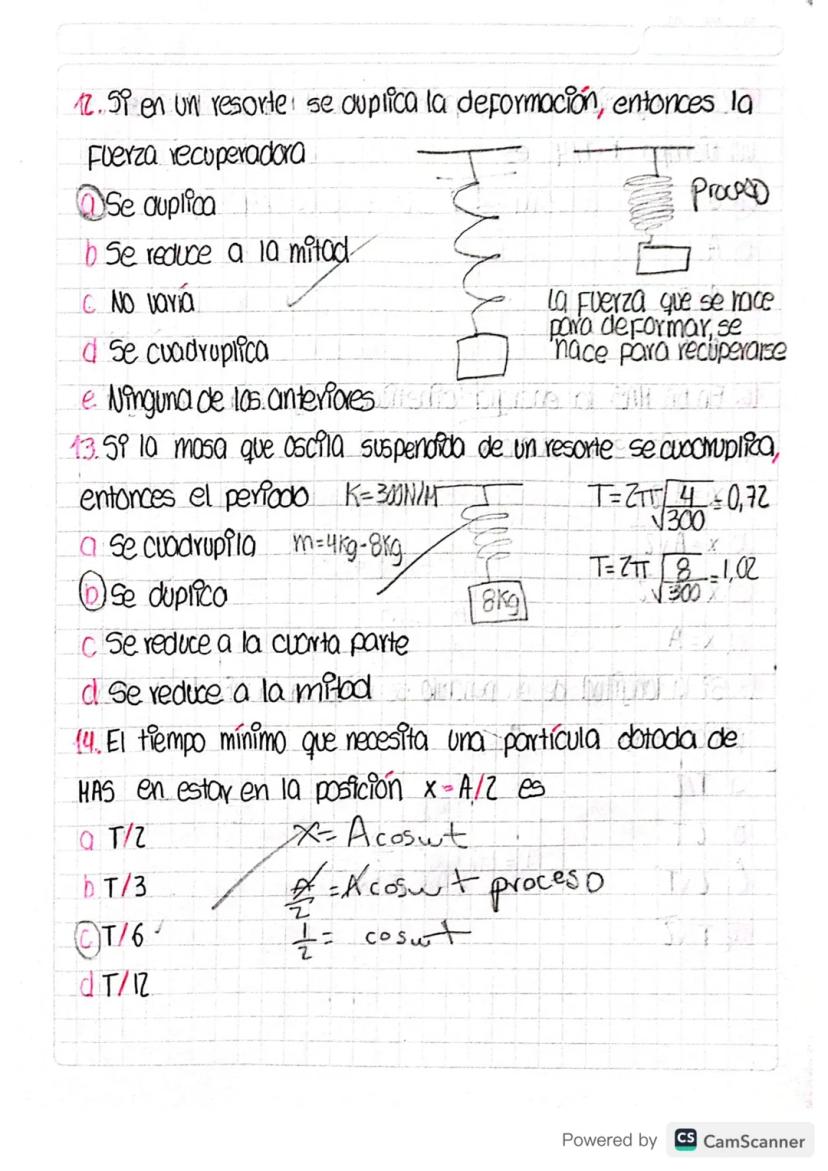 12. Si en un resorte se duplica la deformación, entonces la
Fuerza recuperadora
a Se duplica
b Se reduce a la mitad
c No varía
d Se cuadruplica
e. Ninguna de las anteriores
Proceso
la Fuerza que se hace
para deformar, se
hace para recuperarse
13. Si la masa que oscila suspendida de un resorte se cuadruplica,
entonces el período K=300N/M
a Se cuadrupila m=4kg-8kg
b Se duplica
c Se reduce a la cuarta parte
d. Se reduce a la mitad
8Kg
T=2π √4/√300 = 0,72
T=2π √8/√300 = 1,02
14. El tiempo mínimo que necesita una partícula dotada de
HAS en estar en la posición x=A/2 es
a T/2
b T/3
c T/6
d T/12
x= A cos wt
A/2 = A cos wt proceso
1/2 = cos wt
Powered by CS CamScanner